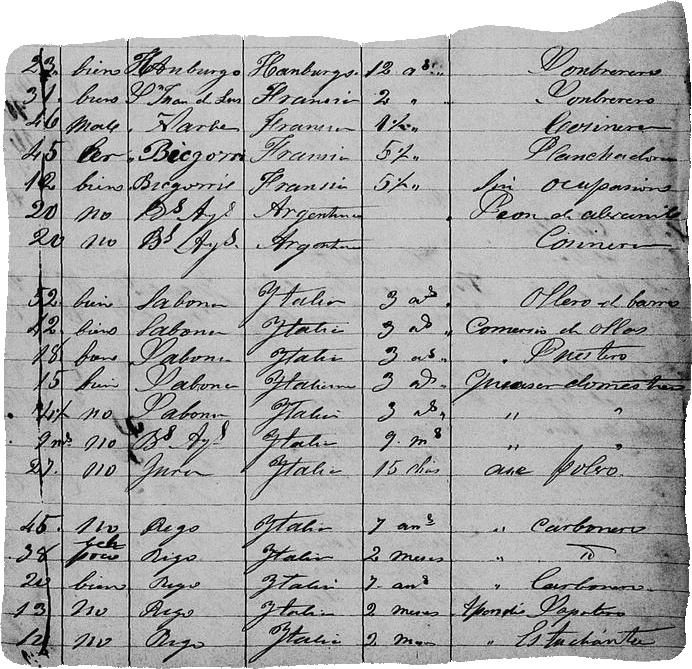 23. bien Hanburgo Hanburgo. 12 as. Sonbrerero
31. bien Sn Juan d. Lus Fransia 2 " Sonbrerero
46 Fransia Cosinera
45 Ler Biegorri Fransia 5 Planchadora
12 biens Biegorrie Fransia 5 Sin ocupasion
20 no Bs Ays Argentina Peon de
20 no Bs Ays. Argentina Cosinera
52. bien Sabona Italia 3 as Ollero d. barro
42. bien Sabona Italia 3 as " Comersio d. ollas
18. bien Sabona Italia 3 as " Puestero
15 bien Sabona Italiana 3 as " domestico
no Sabona Italia 3 as " " "
9 ms no Bs Ays Italia 9. ms " "
27. no Italia 15 dias ase polvo.
45. no Rego Italia 7 ans " Carbonero
38 poco Rigo Italia 2 meses " ID
20 bien Rego Italia 7 ans " Carbonero
13 no Rego Italia 2 meses Apondis Sapatero
12 no Rego Italia 2 " Estudiante